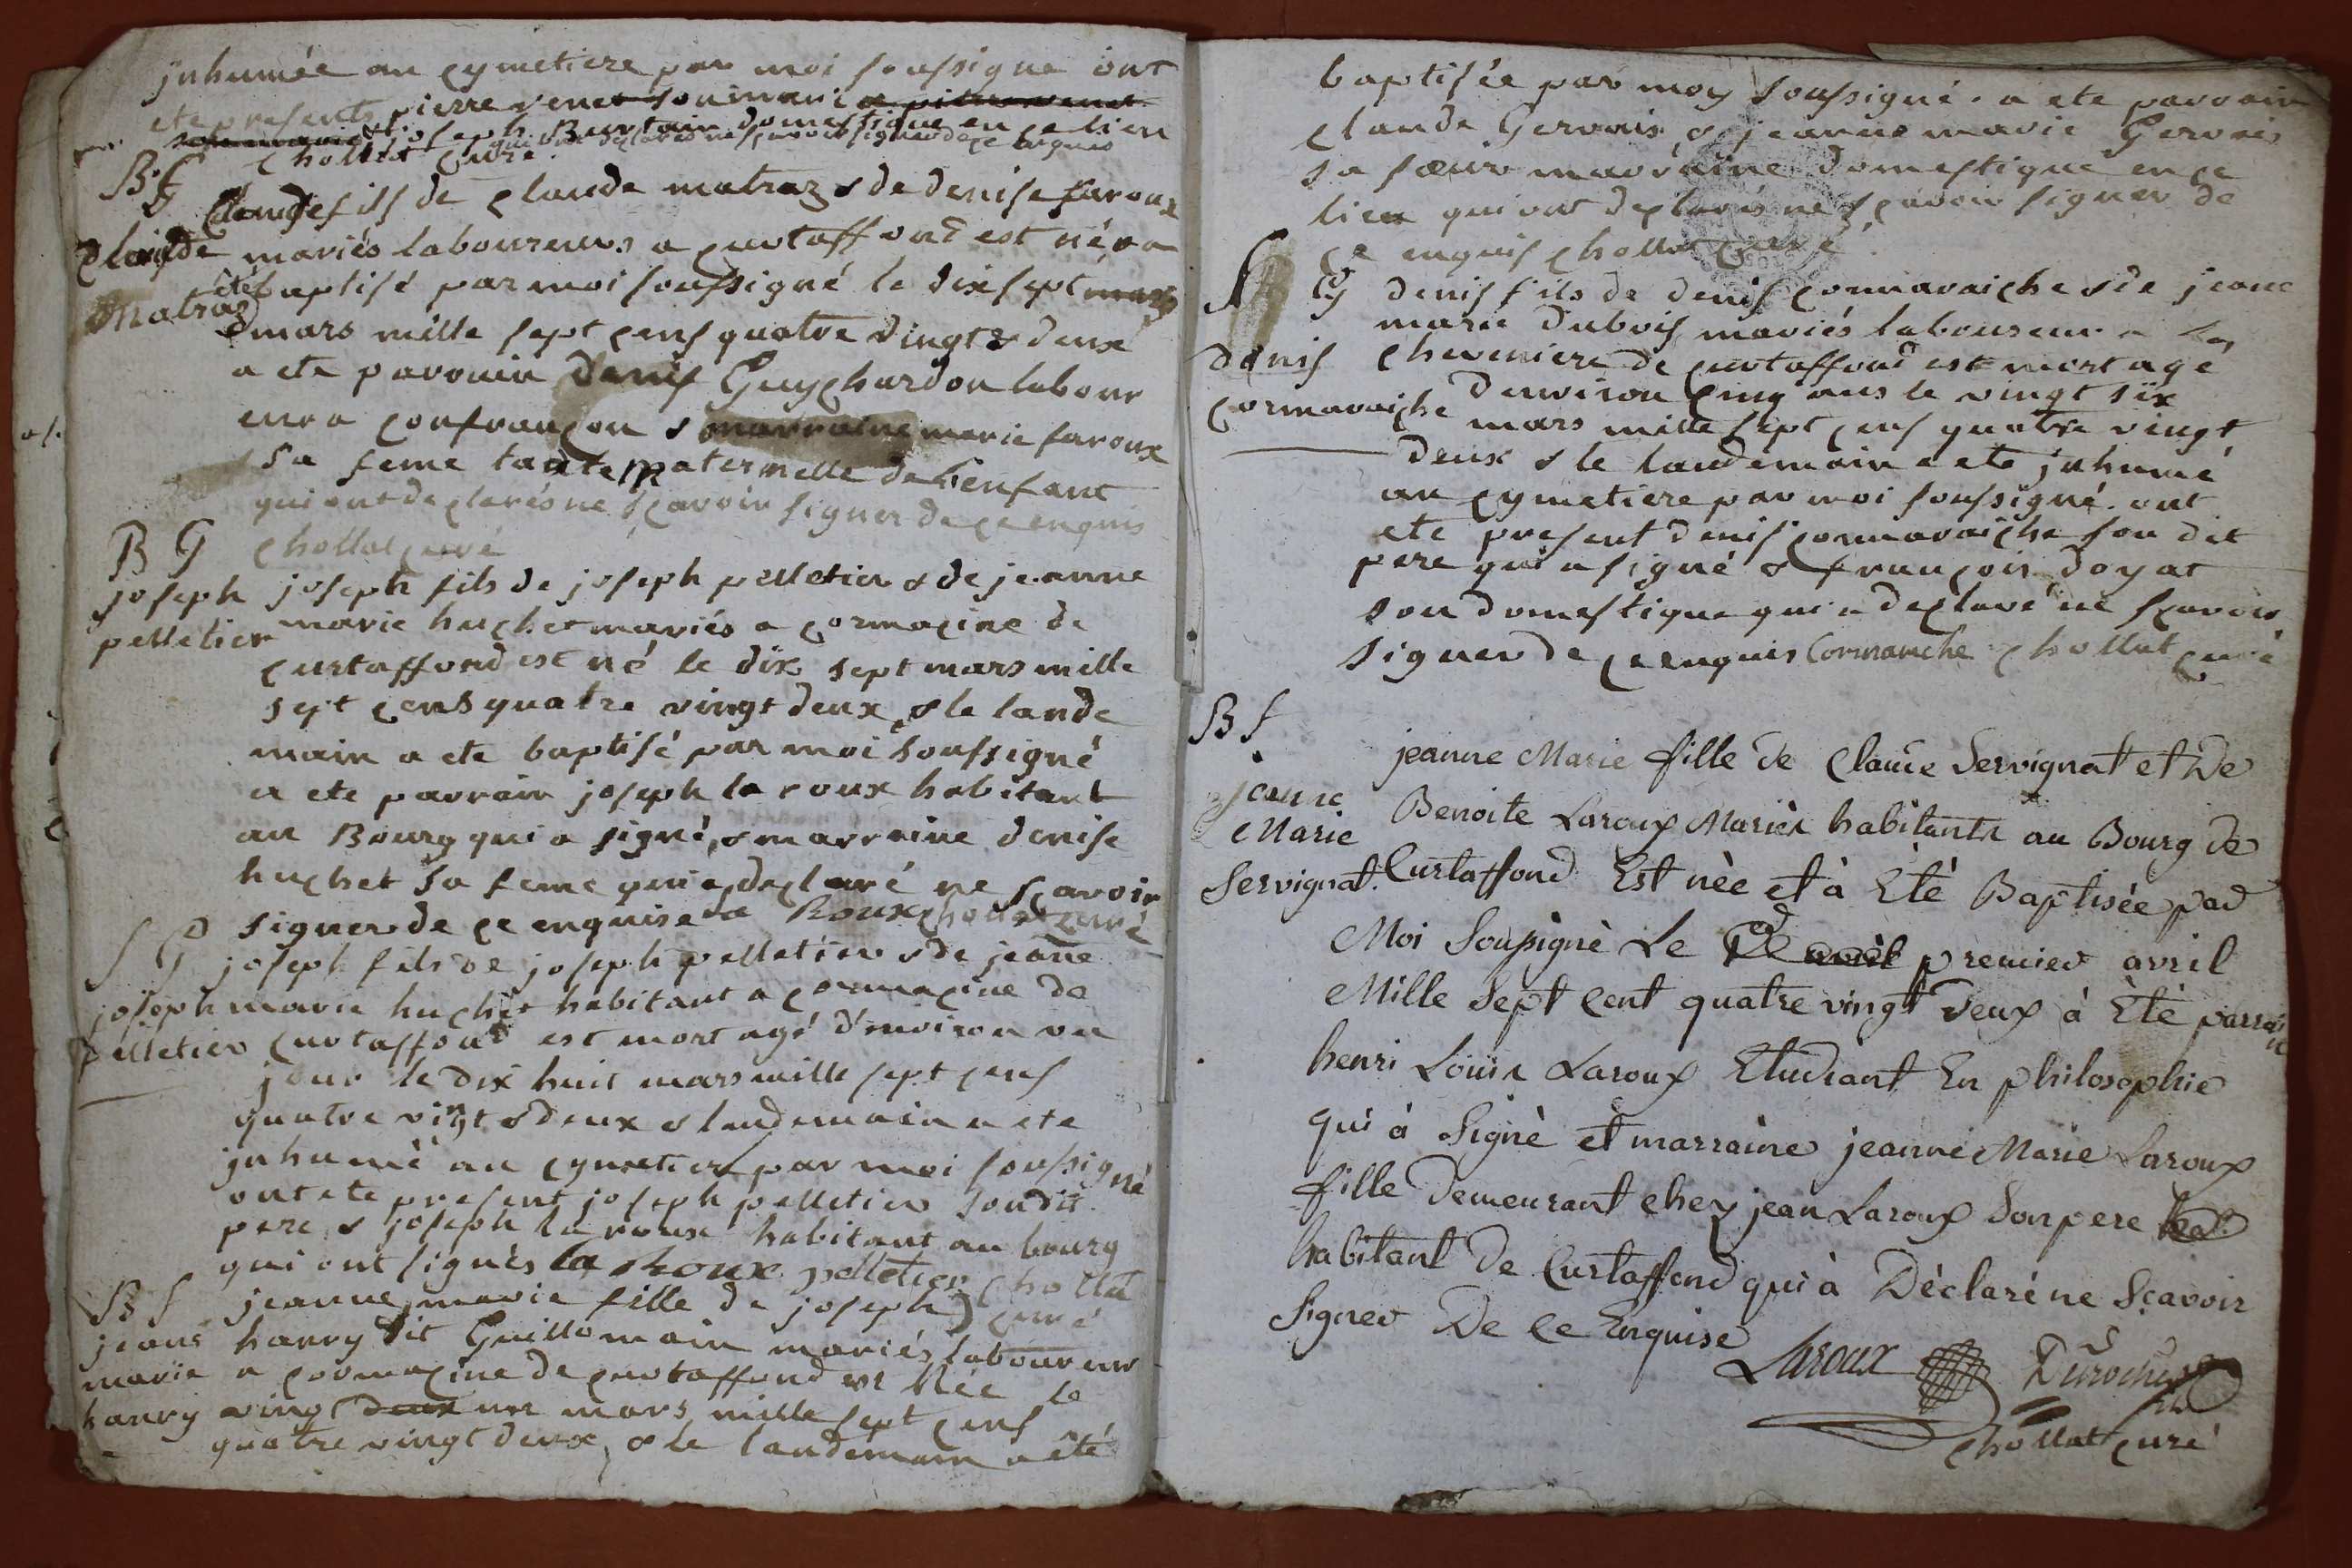 jnhumée au cymetiere par moi soussigné ont
ete presents pierre venet son mari a pierre venet
son mari & joseph Burtain domestique en ce lieu
qui ont declarés ne sçavoir signer de ce enquis
chollat curé
B G
Claude fils de claude matraz & de denise faroux
claude
matraz
mariés laboureurs a curtaffond est né & a
été baptisé par moi soussigné le dix sept mars
mars mille sept cens quatre vingt & deux
a ete parrain denis Guychardon labour
eur a confrançon & marraine marie faroux
sa feme tante maternelle de l'enfant
qui ont declarés ne sçavoir signer de ce enquis
chollat curé
B G
joseph
pelletier
joseph fils de joseph pelletier & de jeanne
marie huchet mariés a cormacine de
curtaffond est né le dix sept mars mille
sept cens quatre vingt deux & le lande
main a ete baptisé par moi soussigné
a ete parrain joseph la roux habitant
au Bourg qui a signé, & marraine denise
huchet sa feme qui a declaré ne sçavoir
signer de ce enquise la Roux chollat curé
S G
joseph
pelletier
joseph fils de joseph pelletier & de jeane
marie huchet habitant a cormacine de
curtaffond est mort agé d'environ un
jour le dix huit mars mille sept cens
quatre vingt & deux & landemain a ete
jnhumé au cymetiere par moi soussigné
ont ete present joseph pelletier sondit
pere & joseph la roux habitant au bourg
qui ont signés la Roux pelletier chollat
curé
B f
jeane
marie
harry
jeanne marie fille de joseph
harry dit Guillomain mariés laboureur
a cormacine de curtaffond est Née le
vingt deux un mars mille sept cens
quatre vingt deux, & le landemain a été
baptisée par moy soussigné. a ete parrain
claude Gervais & jeanne marie Gervais
sa sœur marraine domestique en ce
lieu qui ont declarés ne sçavoir signer de
ce enquis chollat curé
S G
denis
cormaraiche
denis fils de denis cormaraiche & de jeane
marie dubois mariés laboureur a la
cheveniere de curtaffond est mort agé
d'environ cinq ans le vingt six
mars mille sept cens quatre vingt
deux & le landemain a ete jnhumé
au cymetiere par moi soussigné. ont
ete present denis cormaraiche son dit
pere qui a signé & françois doyat
son domestique qui a declaré ne sçavoir
signer de ce enquis Cormareche chollat curé
B f
jeanne
Marie
Servignat.
jeanne Marie fille de Claude Servignat et De
Benoite Laroux Mariés habitants au Bourg de
Curtaffond Est née et à Eté Baptisée par
Moi Soussigné Le premier avril
Mille Sept Cent quatre vingt deux à Eté parrain
henri Louis Laroux Etudiant En philosophie
qui à Signé et marraine jeanne Marie Laroux
fille Demeurant chez jean Laroux Son pere
habitant De Curtaffond qui à Déclaré ne Sçavoir
Signer De Ce Enquise
Laroux Durochat
chollat curé